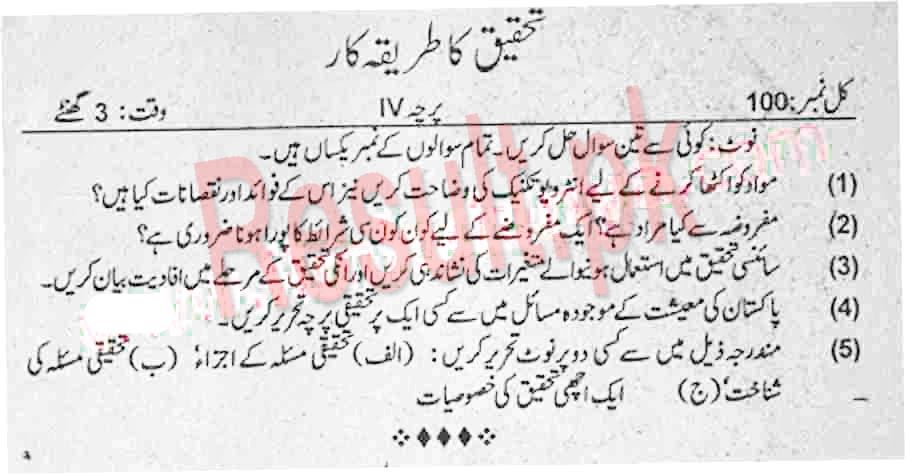 تحقیق کا طریقہ کار
کل نمبر: 100 پرچہ IV وقت: 3 گھنٹے
نوٹ: کوئی سے تین سوال حل کریں۔ تمام سوالوں کے نمبر یکساں ہیں۔
(1) مواد کو اکٹھا کرنے کے لیے انٹرویو تکنیک کی وضاحت کریں نیز اس کے فوائد اور نقصانات کیا ہیں؟
(2) مفروضہ سے کیا مراد ہے؟ ایک مفروضے کے لیے کون کون سی شرائط کا پورا ہونا ضروری ہے؟
(3) سائنسی تحقیق میں استعمال ہونیوالے متغیرات کی نشاندہی کریں اور انکی تحقیق کے مرحلے میں افادیت بیان کریں۔
(4) پاکستان کی معیشت کے موجودہ مسائل میں سے کسی ایک پر تحقیقی پرچہ تحریر کریں۔
(5) مندرجہ ذیل میں سے کسی دو پر نوٹ تحریر کریں: (الف) تحقیقی مسئلہ کے اجزاء (ب) تحقیقی مسئلہ کی
شناخت (ج) ایک اچھی تحقیق کی خصوصیات
Result.pk
.com